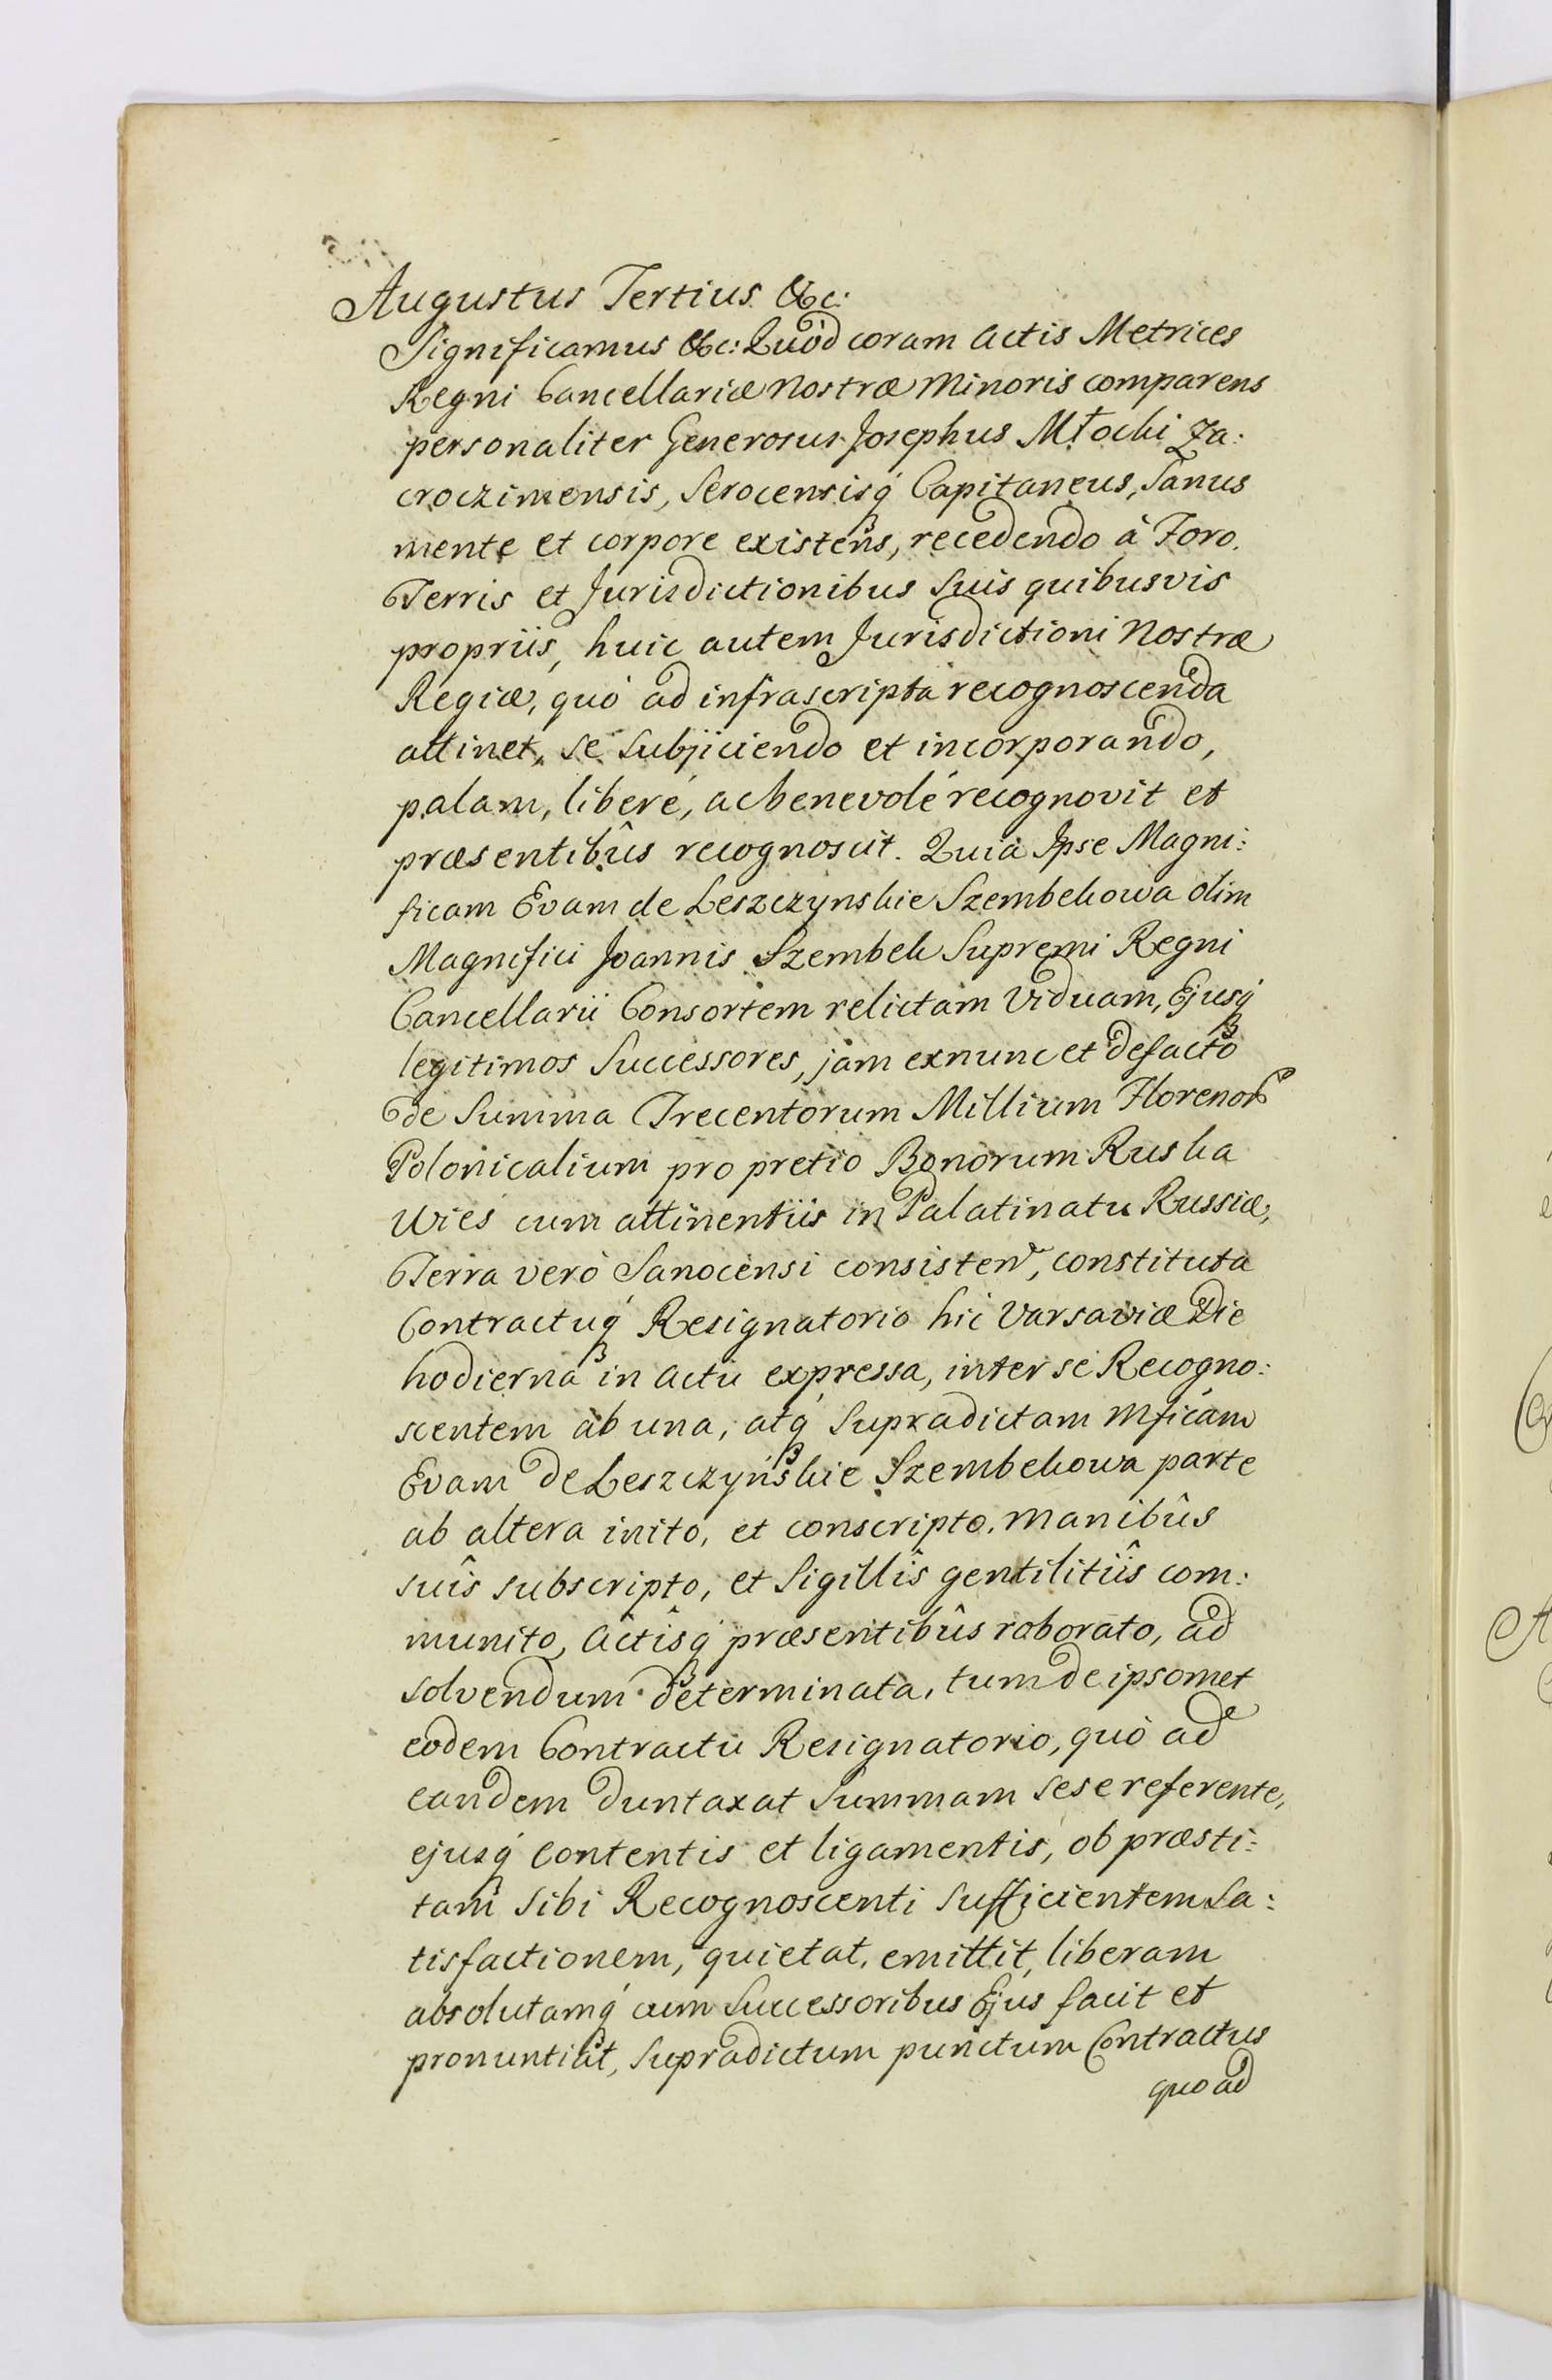 Augustus Tertius &c:
Significamus &c: Quòd coram Actis Metrices
Regni Cancellariæ Nostræ Minoris comparens
personaliter Generosus Josephus Młocki Za:
croczimensis, Serocensisq́ Capitaneus, Sanus
mente et corpore existens, recedendo à Foro.
Terris et Jurisdictionibus Suis quibusvis
propriis, huic autem Jurisdictioni Nostræ
Regiæ, quò ad infrascripta recognoscenda
attinet, se subjiciendo et incorporando,
palam, liberé, ac benevolé recognovit et
præsentibûs recognoscit. Quia Ipse Magni:
ficam Evam de Leszczynskie Szembekowa olim
Magnifici Joannis Szembek Supremi Regni
Cancellarii Consortem relictam Viduam, Ejusq́
legitimos Successores, jam exnunc et defacto
de Summa Trecentorum Millium Florenor
Polonicalium pro pretio Bonorum Ruska
Wies cum attinentiis in Palatinatu Russiæ,
Terra verò Sanocensi consisten, constituta
Contractuq́ Resignatorio hic Varsaviæ Die
hodierna in Actu expressa, inter se Recogno:
scentem ab una, atq́ supradictam Mficam
Evam de Leszczynskie Szembekowa parte
ab altera inito, et conscripto, manibûs
suîs subscripto, et Sigillîs gentilitiîs com:
munito, Actîsq́ præsentibûs roborato, ad
solvendum determinata, tum de ipsomet
eodem Contractu Resignatorio, quò ad
eandem duntaxat Summam sese referente,
ejusq́ Contentis et ligamentis, ob præsti:
tam sibi Recognoscenti sufficientem Sa:
tisfactionem, quietat, emittit, liberam
absolutamq́ cum Successoribus Ejus facit et
pronuntiat, supradictum punctum Contractus
quo ad